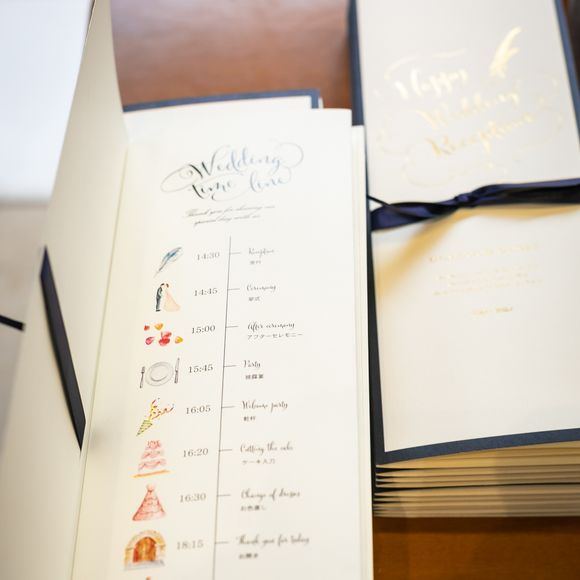 Wedding
time line
Thank you for sharing our
special day with us.
14:30
Reception
受付
14:45
Ceremony
挙式
15:00
After ceremony
アフターセレモニー
15:45
Party
披露宴
16:05
Welcome party
乾杯
16:20
Cutting the cake
ケーキ入刀
16:30
Change of dresses
お色直し
18:15
Thank you for today
お開き
Happy
Wedding
Reception